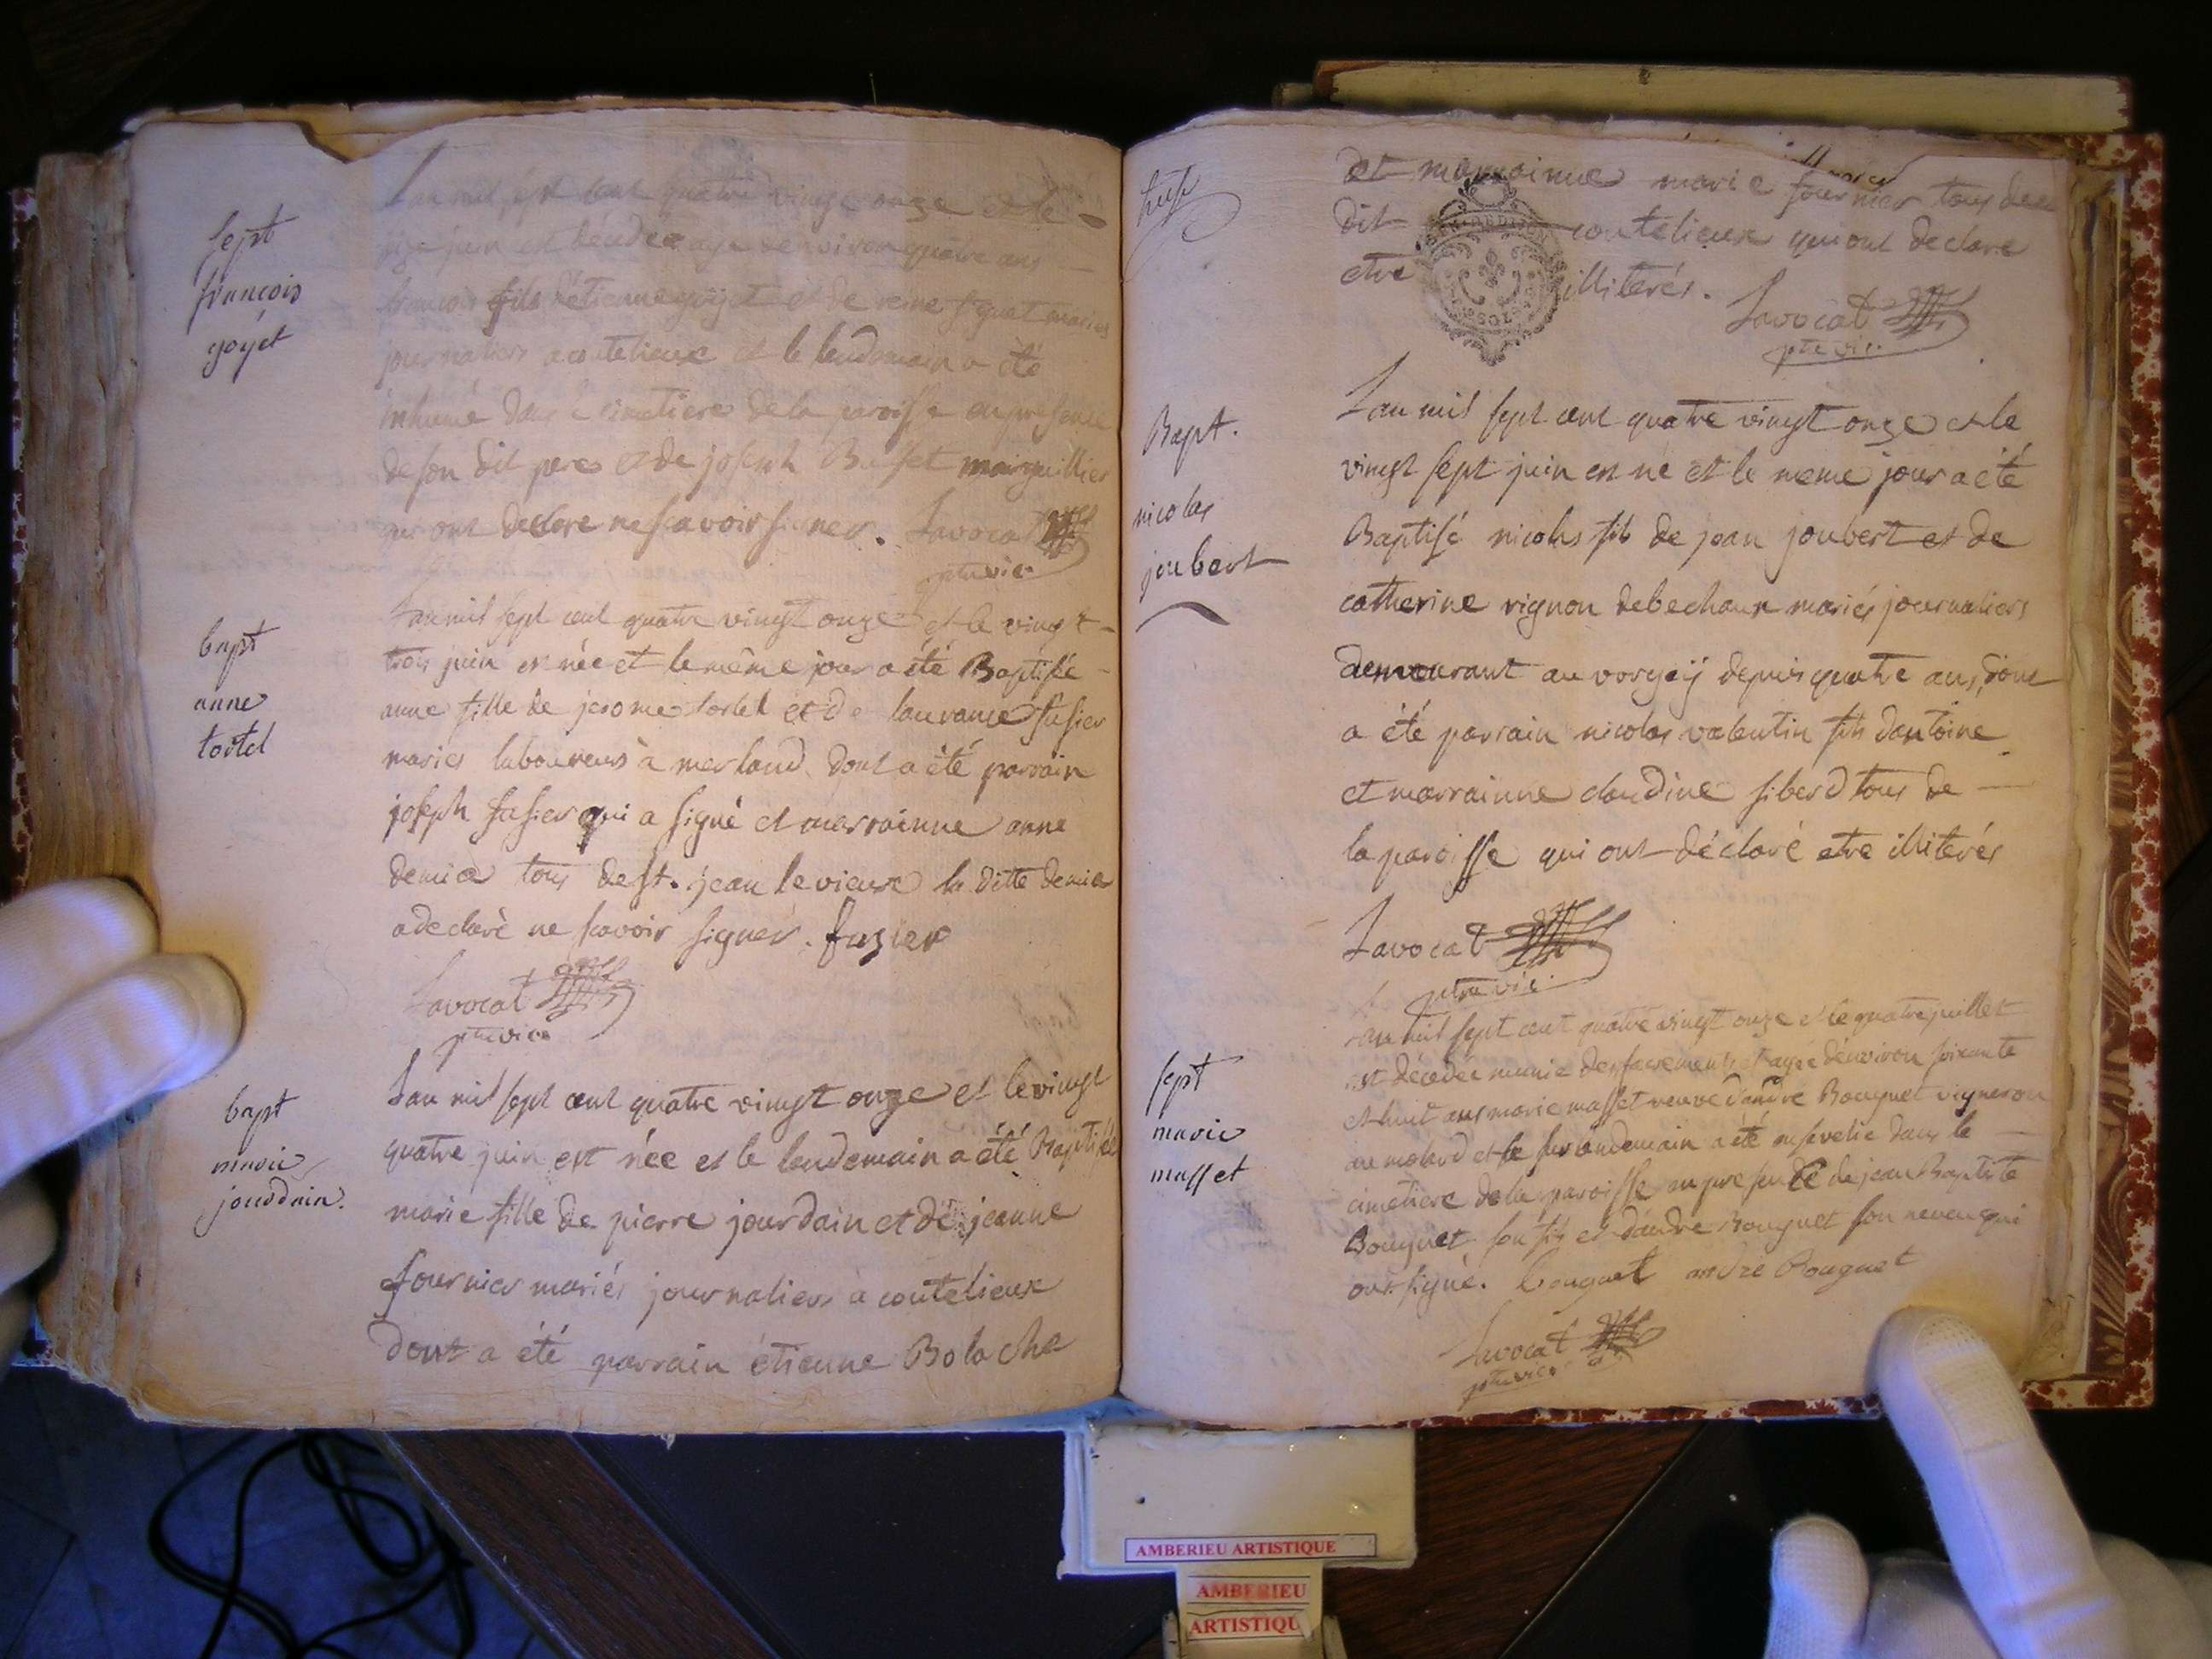 sept
françois
goÿet
Lan mil sept cent quatre vingt onze et le
juin est décédé age denviron quatre ans
françois fils détienne goÿet et de reine mariés
journaliers a coutelieux et le lendemain a été
inhumé dans le cimetiere de la paroisse en presence
de son dit pere et de joseph Buffet marguillier
qui ont declare ne scavoir signer. Lavocat
ptre vic.
bapt
anne
tortel
Lan mil sept cent quatre vingt onze et le vingt
trois juin est née et le même jour a été Baptisée
anne fille de jerome tortel et de laurance fusier
mariés laboureurs à merland dont a été parrain
joseph fusier qui a signé et marrainne anne
demia tous de st. jean le vieux la ditte demia
a declaré ne scavoir signer. fuzier
Lavocat
ptre vic
bapt
marie
jourdain.
Lan mil sept cent quatre vingt onze et le vingt
quatre juin est née et le lendemain a été Baptisée
marie fille de pierre jourdain et de jeanne
fournier mariés journaliers a coutelieux
dont a été parrain étienne Bolache
et marrainne marie fournier tous de
dit coutelieux qui ont declare
etre illiterés.
Lavocat
ptre vic.
Bapt.
nicolas
joubert
Lan mil sept cent quatre vingt onze et le
vingt sept juin est né et le meme jour a été
Baptisé nicolas fils de jean joubert et de
catherine vignon debechaux mariés journaliers
demeurant au vorgeÿ depuis quatre ans, dont
a été parrain nicolas valentin fils dantoine
et marrainne claudine siberd tous de
la paroisse qui ont déclaré etre illiterés
Lavocat
ptre vic.
sept
marie
masset
Lan mil sept cent quatre vingt onze et le quatre juillet
est décédée munie des sacrements et agée denviron soixante
et huit ans marie masset veuve dandré Bouguet vigneron
au molard et le surlendemain a été ensevelie dans le
cimetiere de la paroisse en presence de jean Baptiste
Bouguet son fils et dandré Bouguet son neveu qui
ont signé. Bouguet andré Bouguet
Lavocat
ptre vic
AMBERIEU ARTISTIQUE
AMBERIEU
ARTISTIQU